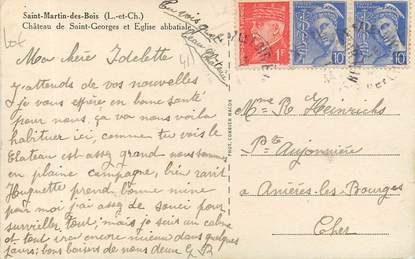 Saint-Martin-des-Bois (L.-et-Ch.)
Château de Saint-Georges et Eglise abbatiale
Ma chère Idelette
j'attends de vos nouvelles
je vous espère, en bonne santé
pour nous, ça va nous voila
habituer ici, comme tu vois le
Chateau est assez grand nous sommes
en pleine campagne, bien ravit
Huguette prend bonne mine
pour moi j'ai assez de souci pour
surveiller tout; mais je suis au calme
et tout ira encore mieux dans quelques
jours; bons baisers de nous deux G B
1F
10
10
Mme R Heinrichs
à Anières-les-Bourges
Cher
PHOT. COMBIER MACON